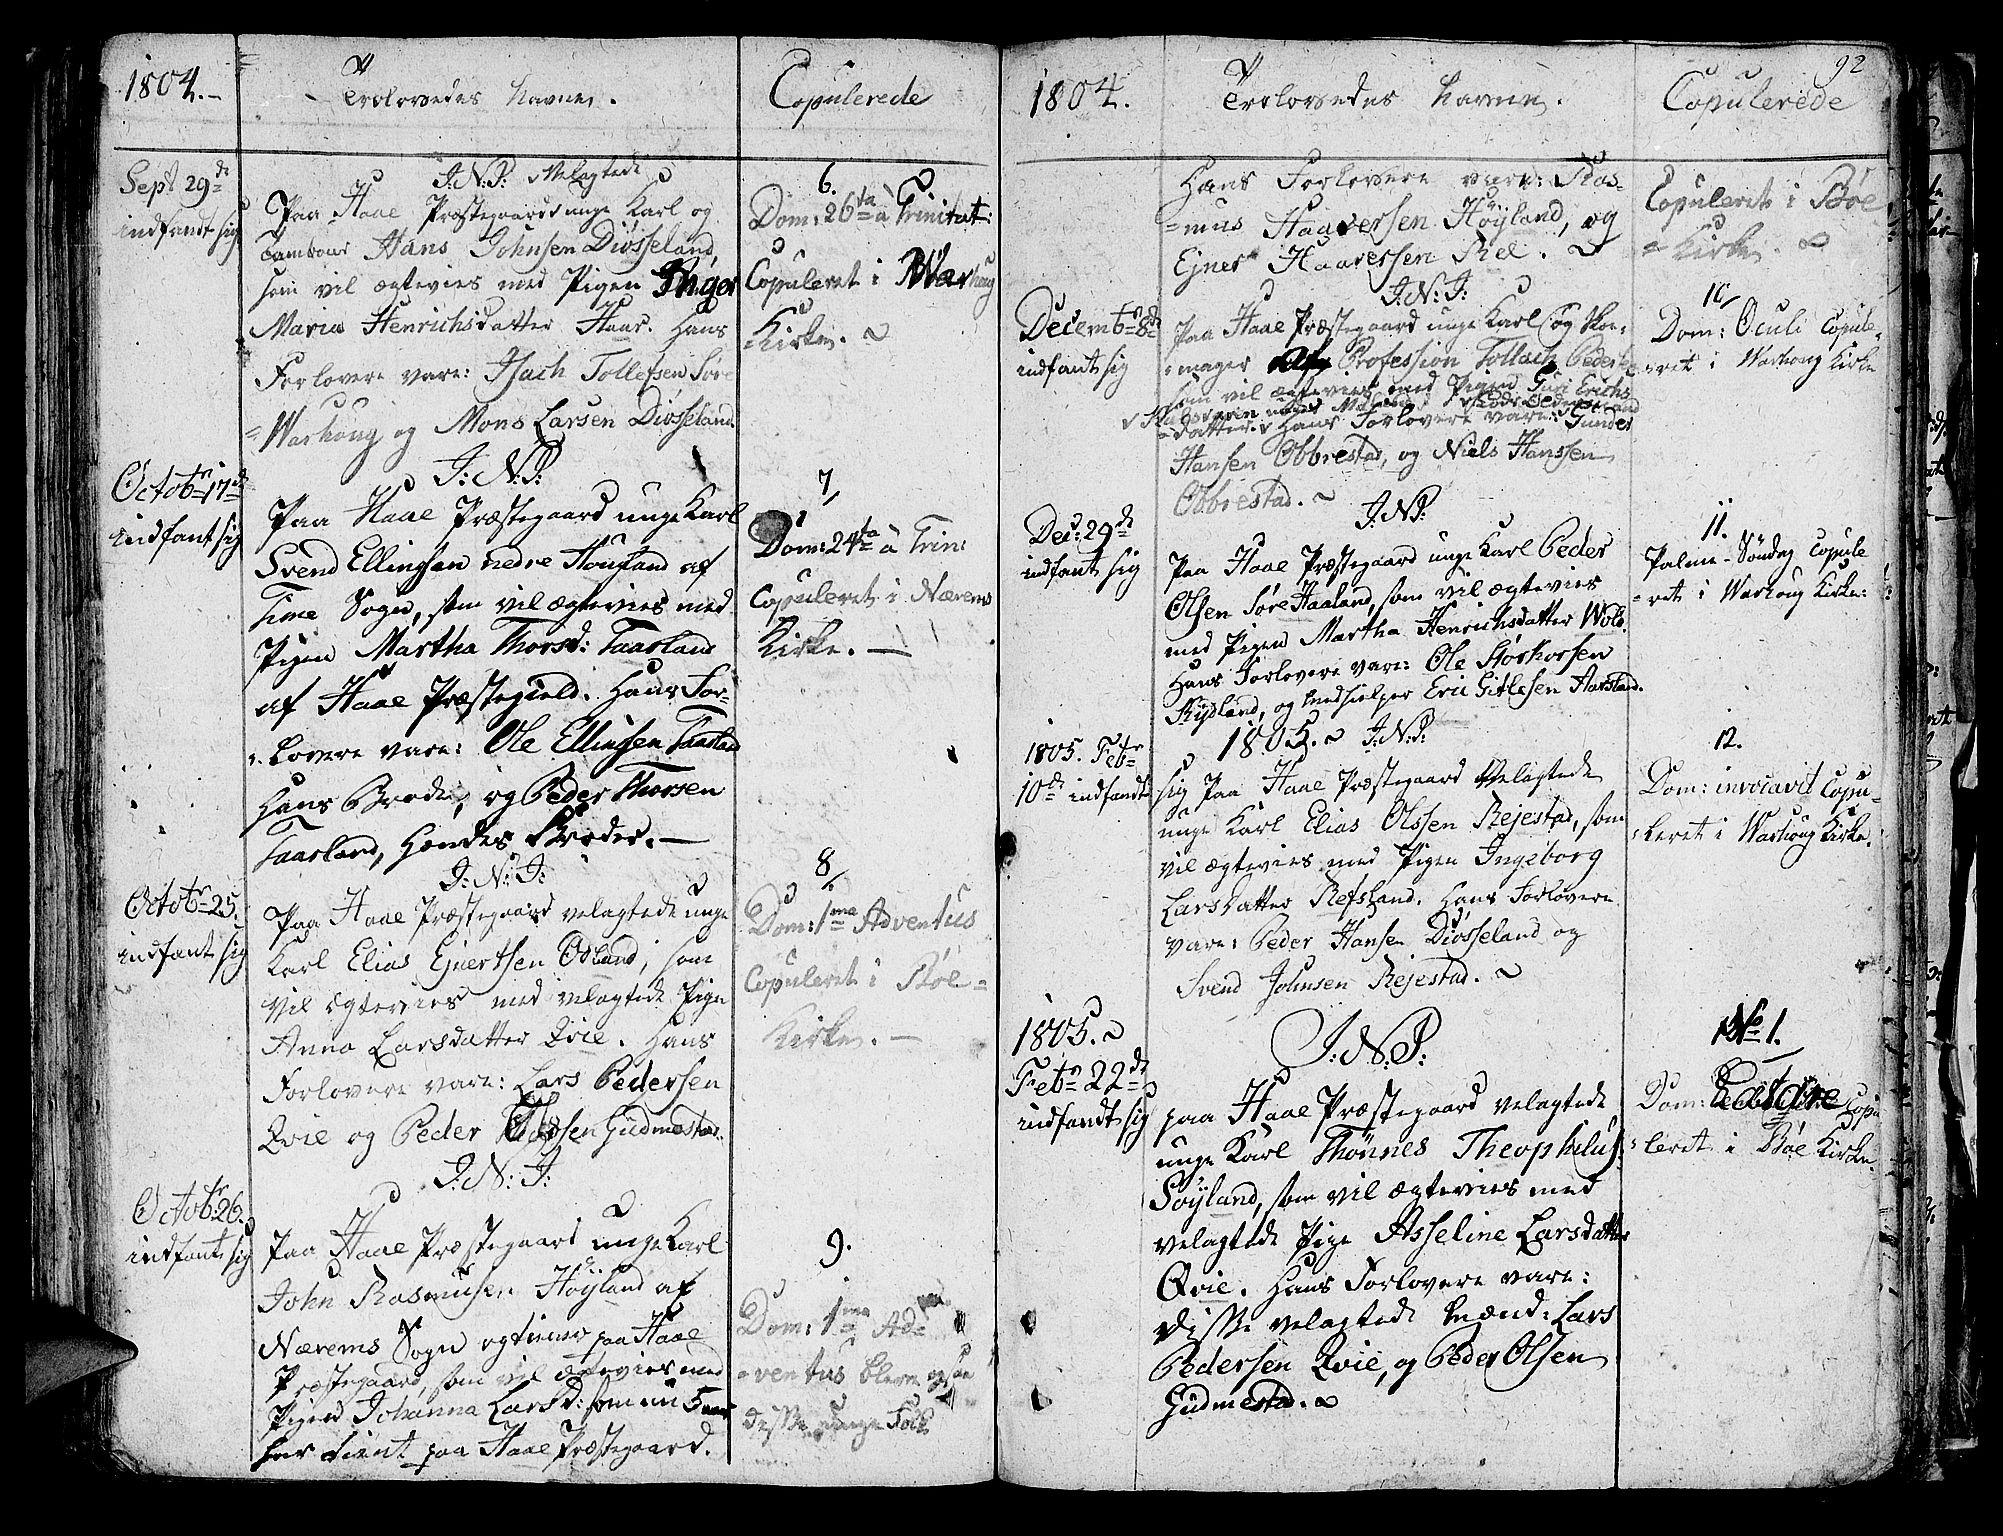 1804.
Trolovedes Navne.
Copulerede
Sept 29de
indfandt sig
J.N.J: Velagtede
Paa Haae Præstegaard unge Karl og
Tambour Hans Johnsen Diósseland,
som vil ægtevies med Pigen
Maria Henrichsdatter Haar. Hans
Forlovere vare: Tollefsen Søre
Warhoug og Mons Larsen Diósseland.
6.
Dom: 26ta à Trinitat:
Copuleret i Warhoug
Kirke.
Octobr 17de
indfant sig
J:N.J:
Paa Haae Præstegaard unge Karl
Svend Ellingsen nedre Hougland af
Time Sogn, som vil ægtevies med
Pigen Martha Thorsd: Taarland
af Haae Præstegield. Hans For-
lovere vare: Ole Ellingsen Taarland
Hans Broder, og Peder Thorsen
Taarland, Hendes Broder. —
7/
Dom: 24ta à Trin:
Copuleret i Nærems
Kirke. —
Octobr 25.
indfant sig
J:N:J:
Paa Haae Præstegaard velagtede unge
Karl Elias Ejvertsen Odland, som
vil ægtevies med velagtede Pige
Anna Larsdatter Qvie. Hans
Forlovere vare: Lars Pedersen
Qvie og Peder Gudmestad.
8/.
Dom: 1ma Adventus
Copuleret i Bóe
Kirke. —
Octobr 26.
indfant sig
J.N.J:
Paa Haae Præstegaard unge Karl
John Rasmusen Höÿland af
Nærems Sogn og paa Haae
Præstegaard, som vil ægtevies med
Pigen Johanna Larsd: som nu 5 aar
har tient paa Haae Præstegaard.
9.
Dom: 1ma Ad-
ventus bleve
disse unge Folk
1804.
Trolovedes Navne.
Copulerede
92
Hans Forlovere vare: Ras-
mus Haaversen Höÿland, og
Ejner Haaversen Ree.
Copuleret i Bóe
Kirke.
Decembr 8de
indfant sig
J.N:J:
Paa Haae Præstegaard unge Karl og Skoe-
mager Profession Tollach Peders
som vil ægtevies med Pigen Guri Erichs
datter. Hans Forlovere vare: Gunder
Hansen Obbrestad, og Niels Hanssen
Obbrestad.
10/
Dom: Oculi Copule-
ret i Warhoug Kirke
Dec: 29de
indfant sig
J.N.J:
Paa Haae Præstegaard unge Karl Peder
Olsen Søre Haaland, som vil ægtevies
med Pigen Martha Henrichsdatter
Hans Forlovere vare: Ole
og Medhielper Eric Gitlesen Aarsland.
11.
Palme-Søndag Copule
ret i Warhoug Kirke:
1805. Febr
10de indfandt
1805. J.N.J:
sig Paa Haae Præstegaard Velagtede
unge Karl Elias Olssen Rejestad, som
vil ægtevies med Pigen Ingeborg
Larsdatter Refsland. Hans Forlovere
vare: Peder Hansen Diósseland og
Svend Johnsen Rejestad.
12.
Dom: invocavit Copu-
leret i Warhoug Kirke.
1805.
Febr 22de
indfandt sig
J.N.J:
paa Haae Præstegaard velagtede
unge Karl Thönnes Theophilus
Söÿland, som vil ægtevies med
velagtede Pige Asseline Larsdatter
Qvie. Hans Forlovere vare:
disse velagtede Mænd: Lars
Pedersen Qvie, og Peder Olsen
Gudmestad.
No 1.
Dom: Copu
leret i Bóe Kirke.